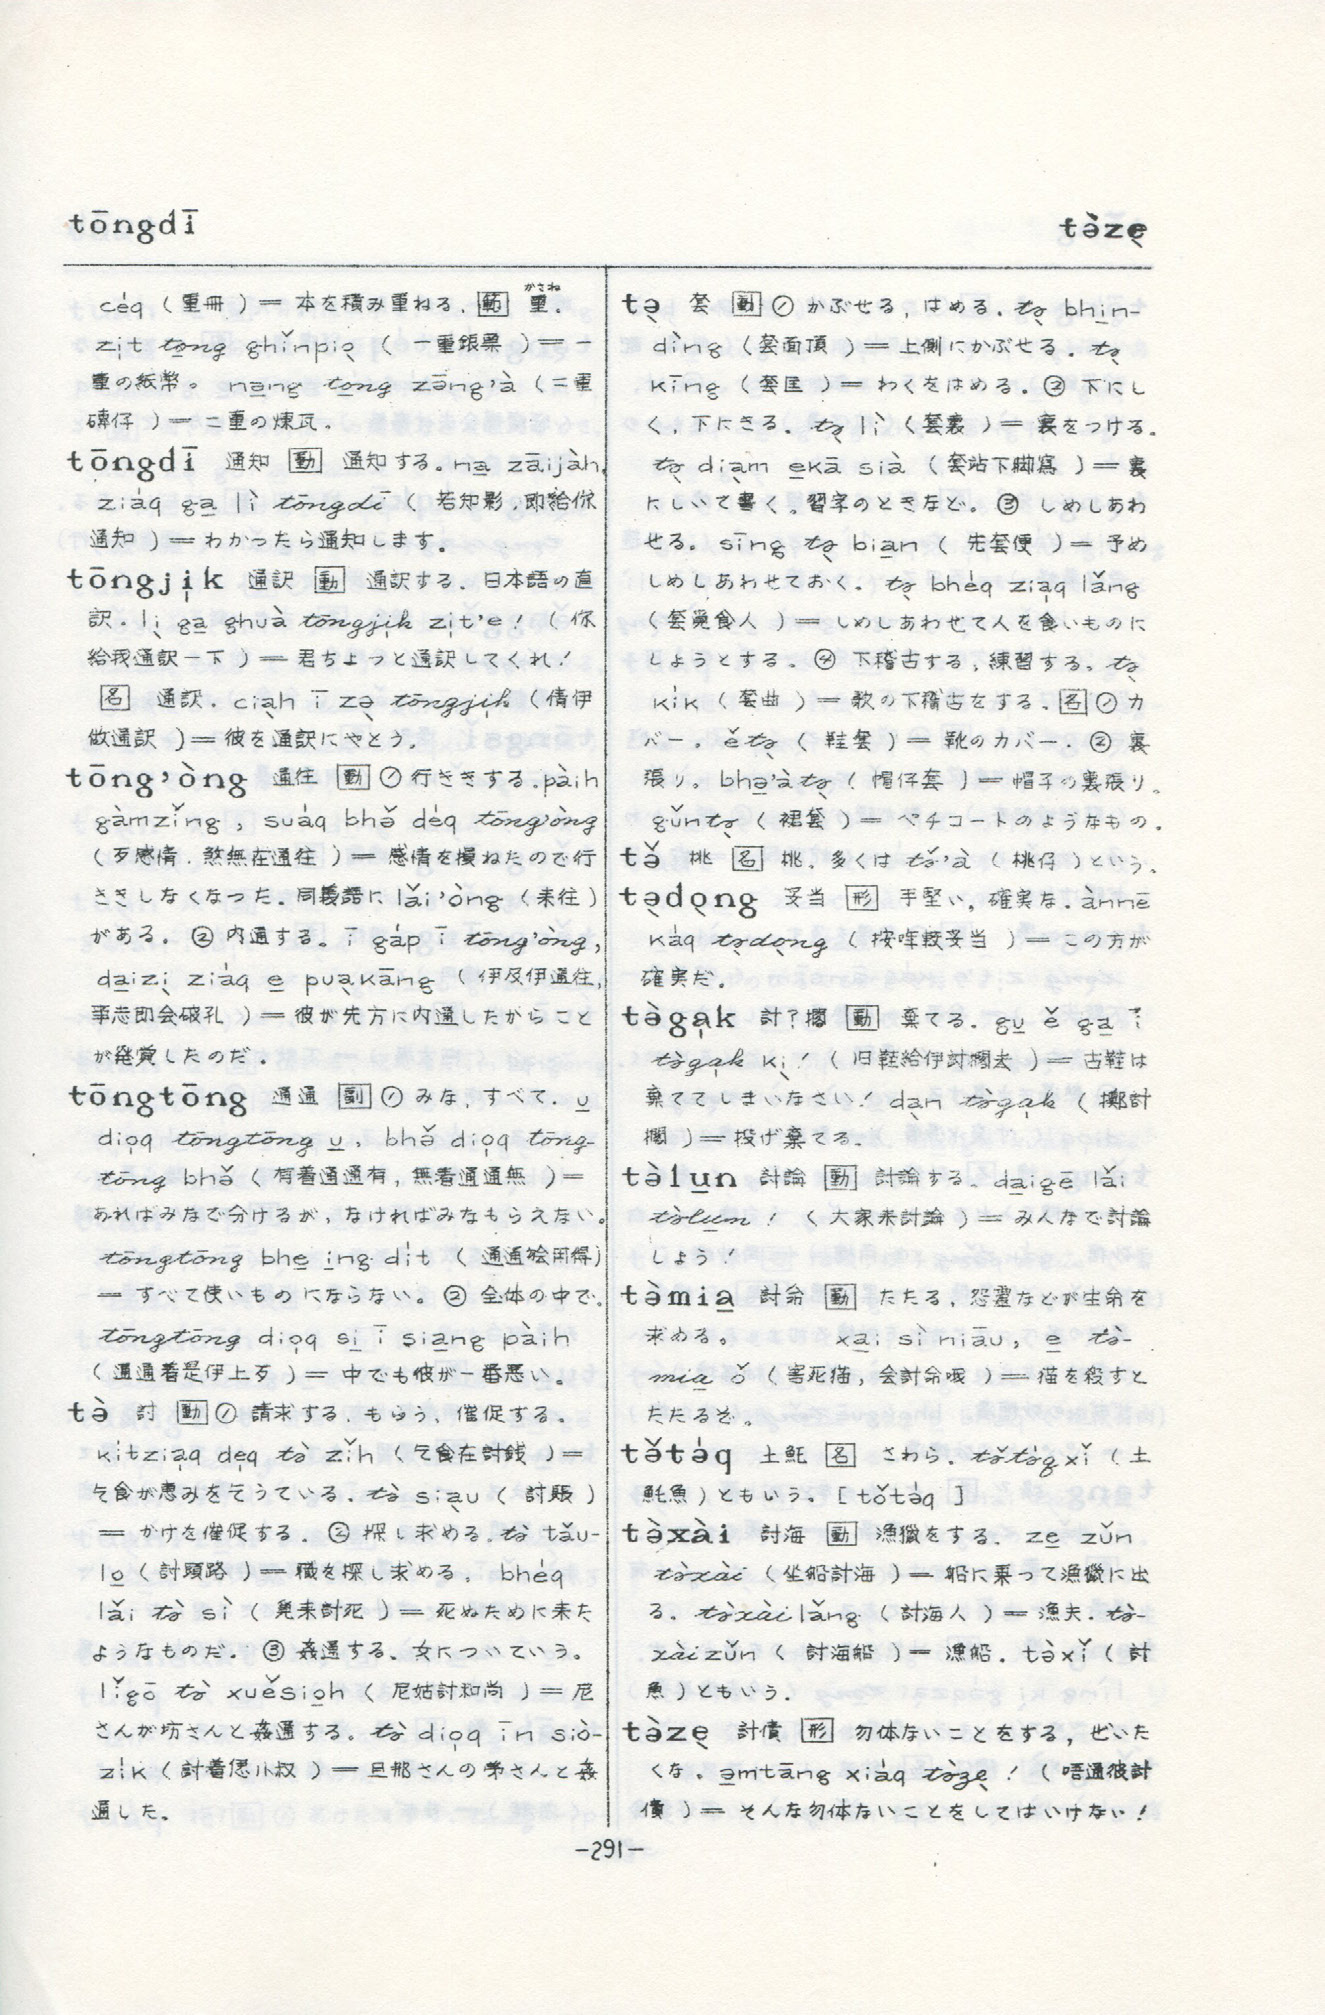 tōngdī
tə̀zẹ
céq（重冊）＝本を積み重ねる．範 重かさね．
zịt tọng ghǐnpiọ（一重銀票）＝一
重の紙幣。nạng tọng zāng'à（二重
磚仔）＝二重の煉瓦．
tōngdī 通知 動 通知する。na̱ zāijàh,
ziáq ga̱ lì tōngdī（若知影，即給你
通知）＝わかったら通知します。
tōngji̍k 通訳 動 通訳する．日本語の直
訳．lị ga̱ ghuà tōngji̍k zi̍t'e！（你
給我通訳一下）＝君ちょっと通訳してくれ！
名 通訳．ciạh ī zə̣ tōngji̍k（倩伊
做通訳）＝彼を通訳にやとう。
tōng'òng 通往 動 ①行ききする．pàih
gàmzǐng，suáq bhə̌ déq tōng'òng
（歹感情．煞無在通往）＝感情を損ねたので行
ききしなくなった．同義語に lǎi'òng（来往）
がある。②内通する。ī gáp ī tōng'òng,
da̱izị ziáq e̱ puạkāng（伊及伊通往，
事志即会破孔）＝彼が先方に内通したからこと
が発覚したのだ．
tōngtōng 通通 副 ①みな，すべて．u̱
dio̍q tōngtōng u̱，bhə̌ dio̍q tōng-
tōng bhə̌（有着通通有，無着通通無）＝
あればみなで分けるが，なければみなもらえない。
tōngtōng bhe̱ i̱ng dít（通通袂用得）
＝すべて使いものにならない。②全体の中で．
tōngtōng dio̍q si̱ ī sia̱ng pàih
（通通着是伊上歹）＝中でも彼が一番悪い。
tə̀ 討 動 ①請求する．もらう，催促する。
kítzia̍q dẹq tə̀ zǐh（乞食在討銭）＝
乞食が恵みをこうている．tə̀ siạu（討賬）
＝かけを催促する．②探し求める．tə̀ tǎu-
lo̱（討頭路）＝職を探し求める．bhéq
lǎi tə̀ sì（覓来討死）＝死ぬために来た
ようなものだ．③姦通する．女についていう。
lǐgō tə̀ xuěsio̱h（尼姑討和尚）＝尼
さんが坊さんと姦通する。tə̀ dio̍q īn siò-
zík（討着怹小叔）＝旦那さんの弟さんと姦
通した。
tə̣ 套 動 ①かぶせる，はめる．tə̣ bhi̱n-
dìng（套面頂）＝上側にかぶせる．tə̣
kīng（套匡）＝わくをはめる。②下にし
く，下にきる．tə̣ lì（套裏）＝裏をつける．
tə̣ diạm e̱kā sià（套站下脚写）＝裏
にしいて書く。習字のときなど。③しめしあわ
せる．sīng tə̣ bia̱n（先套便）＝予め
しめしあわせておく．tə̣ bhéq zia̍q lǎng
（套覓食人）＝しめしあわせて人を食いものに
しようとする。④下稽古する，練習する．tə̣
kík（套曲）＝歌の下稽古をする．名 ①カ
バー．ě tə̣（鞋套）＝靴のカバー．②裏
張り．bhə̱'à tə̣（帽仔套）＝帽子の裏張り．
gǔntə̣（裙套）＝ペチコートのようなもの．
tə̌ 桃 名 桃．多くは tə̌'à（桃仔）という。
tə̣dọng 妥当 形 手堅い，確実な．ànnē
káq tə̣dọng（按哖較妥当）＝この方が
確実だ．
tə̀ga̍k 討？擱 動 棄てる．gu̱ ě ga̱ ī
tə̀ga̍k kị！（旧鞋給伊討擱去）＝古鞋は
棄ててしまいなさい！dạn tə̀ga̍k（擲討
擱）＝投げ棄てる．
tə̀lu̱n 討論 動 討論する．da̱igē lǎi
tə̀lu̱n！（大家来討論）＝みんなで討論
しよう！
tə̀mia̱ 討命 動 たたる，怨霊などが生命を
求める。xa̱i sì niāu, e̱ tə̀-
mia̱ ǒ（害死猫，会討命哦）＝猫を殺すと
たたるぞ．
tə̌tə́q 土魠 名 さわら．tə̌tə́qxǐ（土
魠魚）ともいう。［tǒtə́q］
tə̀xài 討海 動 漁獵をする．ze̱ zǔn
tə̀xài（坐船討海）＝船に乗って漁獵に出
る．tə̀xàilǎng（討海人）＝漁夫．tə̀-
xàizǔn（討海船）＝漁船．tə̀xǐ（討
魚）ともいう．
tə̀zẹ 討債 形 勿体ないことをする，ぜいた
くな．ə̱mtāng xiáq tə̀zẹ！（唔通彼討
債）＝そんな勿体ないことをしてはいけない！
-291-